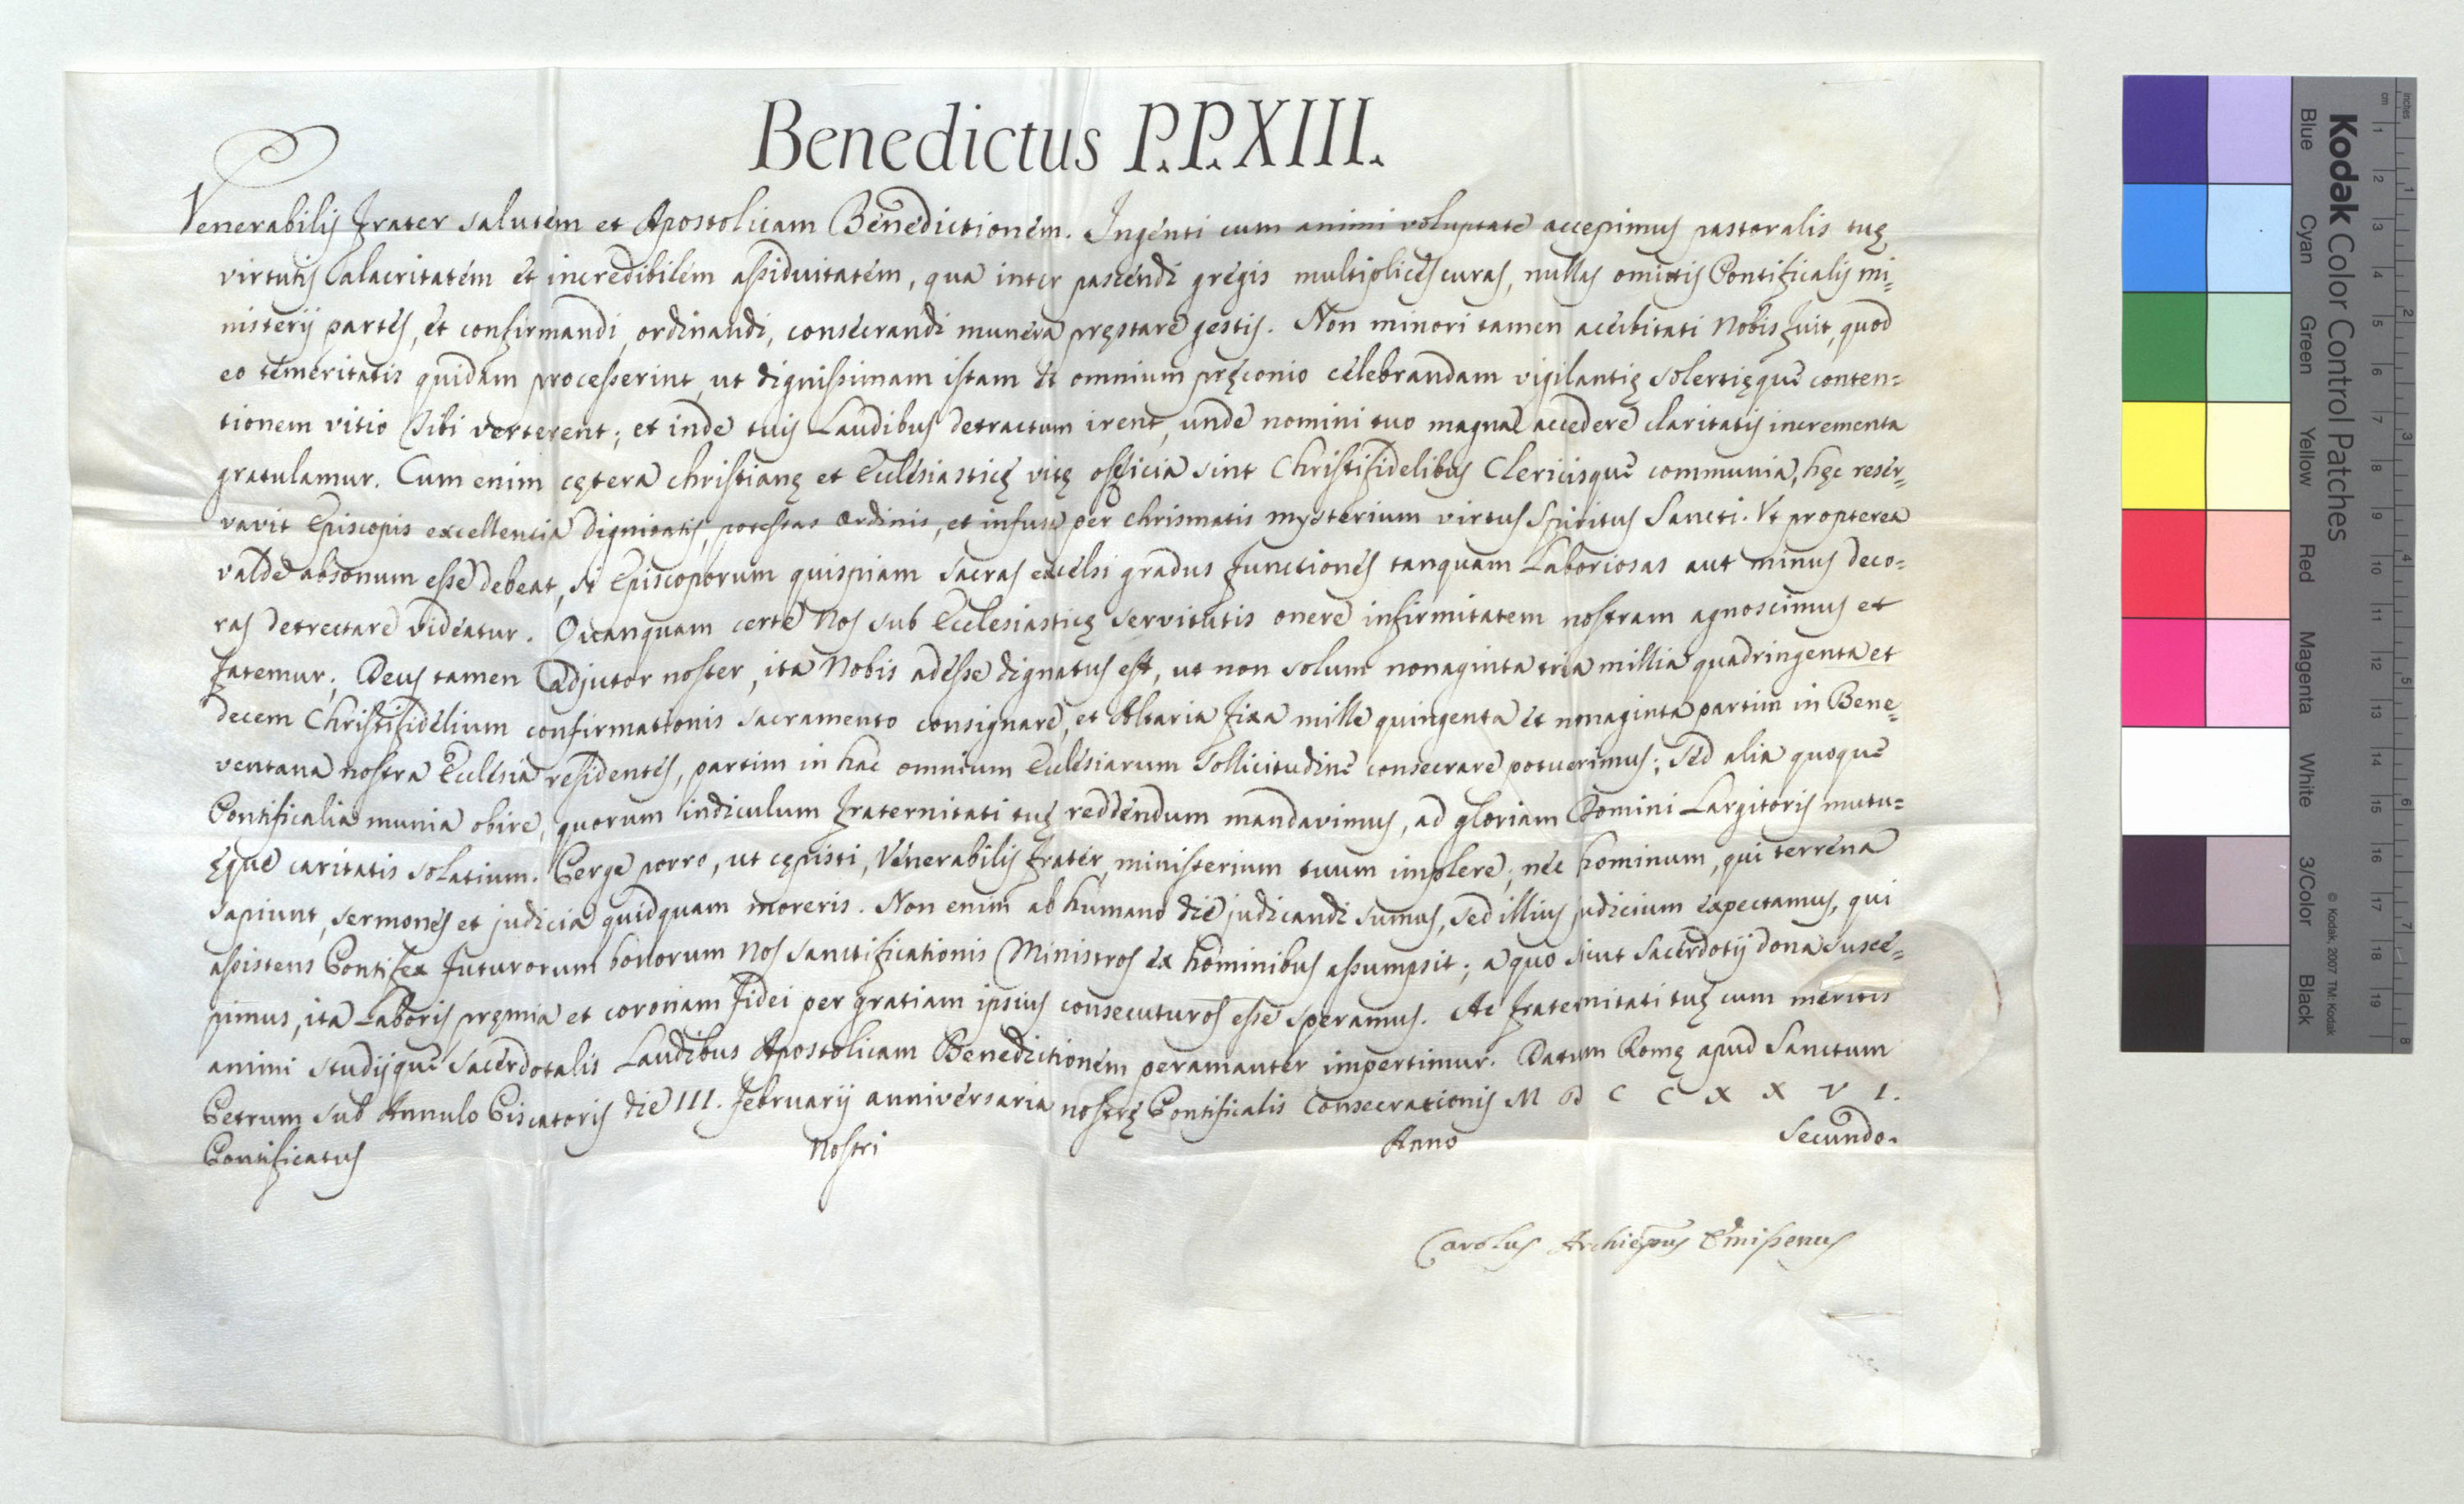 Benedictus P.P. XIII.
Venerabilis Frater salutem et Apostolicam Benedictionem. Ingenti cum animi voluptate accepimus pastoralis tuę
virtutis alacritatem et incredibilem assiduitatem, qua inter pascendi gregis multiplices curas, nullas omittis Pontificalis mi=
nisterij partes, et confirmandi, ordinandi, consecrandi munera pręstare gestis. Non minori tamen acerbitati Nobis fuit, quod
eo temeritatis quidam processerint, ut dignissimam istam et omnium pręconio celebrandam vigilantię solertięque conten=
tionem vitio tibi verterent; et inde tuis Laudibus detractum irent, unde nomini tuo magna accedere claritatis incrementa
gratulamur. Cum enim cętera christianę et Ecclesiasticę vitę officia sint Christifidelibus Clericisque communia, hęc reser=
vavit Episcopis excellentia dignitatis, potestas ordinis, et infusa per chrismatis mysterium virtus Spiritus Sancti. Ut propterea
valde absonum esse debeat, si Episcoporum quispiam sacras excelsi gradus functiones tanquam Laboriosas aut minus deco=
ras detrectare videatur. Quanquam certe Nos sub Ecclesiasticę servitutis onere infirmitatem nostram agnoscimus et
fatemur; Deus tamen Adjutor noster, ita Nobis adesse dignatus est, ut non solum nonaginta tria millia quadringenta et
decem Christifidelium confirmationis sacramento consignare, et Altaria fixa mille quingenta et nonaginta partim in Bene=
ventana nostra Ecclesia residentes, partim in hac omnium Ecclesiarum Sollicitudine consecrare potuerimus; Sed alia quoque
Pontificalia munia obire, quorum indiculum fraternitati tuę reddendum mandavimus, ad gloriam Domini Largitoris mutu=
ęque caritatis solatium. Perge porro, ut cępisti, Venerabilis frater, ministerium tuum implere; nec hominum, qui terrena
sapiunt, sermones et judicia quidquam moreris. Non enim ab humano die judicandi sumus, sed illius judicium expectamus, qui
assistens Pontifex futurorum bonorum Nos sanctificationis Ministros ex hominibus assumpsit; a quo sicut Sacerdotij dona susce=
pimus, ita Laboris pręmia et coronam fidei per gratiam ipsius consecuturos esse speramus. Ac fraternitati tuę cum meritis
animi studijque sacerdotalis Laudibus Apostolicam Benedictionem peramanter impertimur. Datum Romę apud Sanctum
Petrum sub Annulo Piscatoris die III. februarij anniversaria nostrę Pontificalis Consecrationis M D C C X X V I.
Pontificatus Nostri Anno Secundo.
Carolus Archiepus Emissenus
Kodak Color Control Patches
Blue Cyan Green Yellow Red Magenta White 3/Color Black
© Kodak, 2007 TM: Kodak
inches 1 2 3 4 5 6 7 8
cm 1 2 3 4 5 6 7 8 9 10 11 12 13 14 15 16 17 18 19